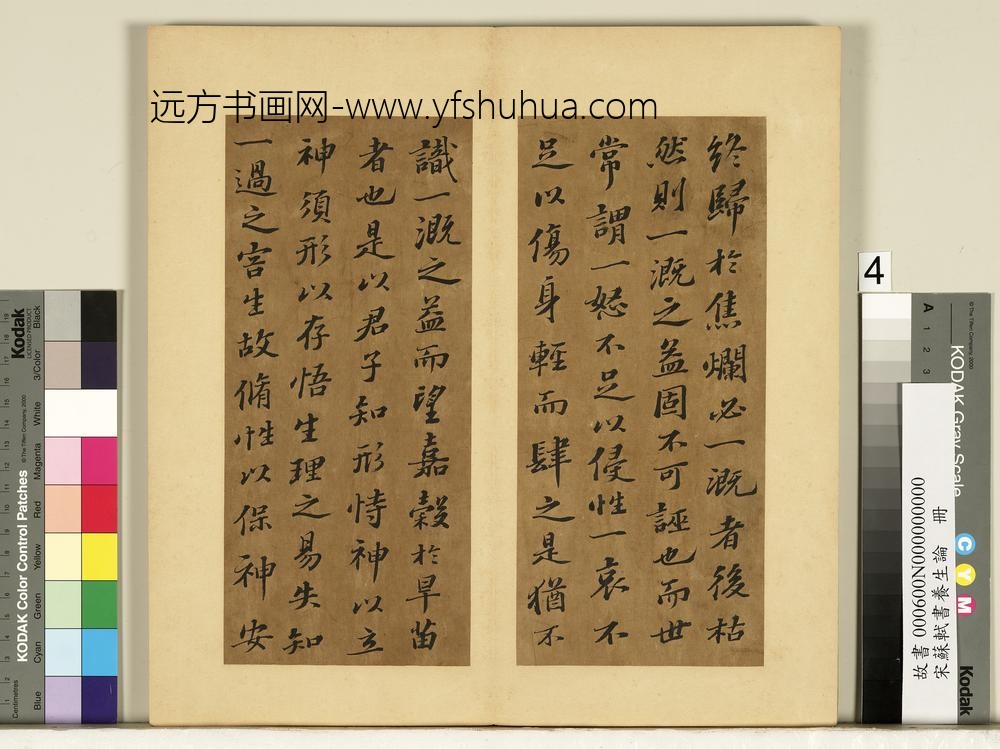 远方书画网-www.yfshuhua.com
終歸於焦爛必一溉者後枯
然則一溉之益固不可誣也而世
常謂一怒不足以侵性一哀不
足以傷身輕而肆之是猶不
識一溉之益而望嘉穀於旱苗
者也是以君子知形恃神以立
神須形以存悟生理之易失知
一過之害生故脩性以保神安
4
Kodak
LICENSED PRODUCT
KODAK Color Control Patches
© The Tiffen Company, 2000
Centimetres
Blue
Cyan
Green
Yellow
Red
Magenta
White
3/Color
Black
KODAK Gray Scale
© The Tiffen Company, 2000
A 1 2 3
C Y M
Kodak
故書000600N000000000
宋蘇軾書養生論 冊